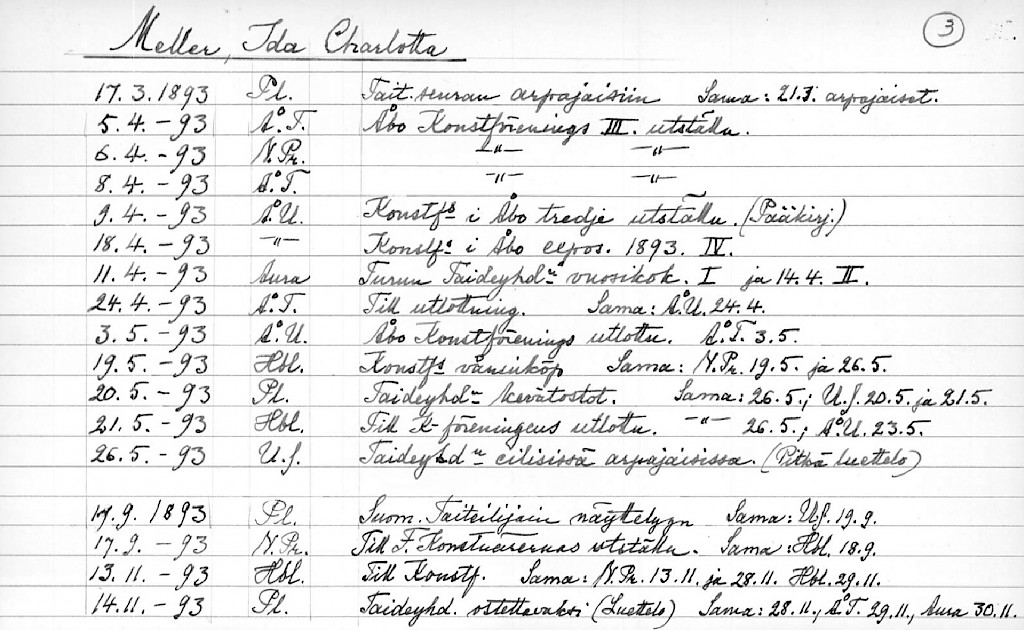 Meller, Ida Charlotta 3
17.3.1893 Pl. Tait. seuran arpajaisiin Sama: 21.3. arpajaiset.
5.4.-93 Å.T. Åbo Konstförenings III. utställn.
6.4.-93 N.Pr. -"- -"-
8.4.-93 Å.T. -"- -"-
9.4.-93 Å.U. Konstfs i Åbo tredje utställn. (Pääkirj.)
18.4.-93 -"- Konstfs i Åbo expos. 1893. IV.
11.4.-93 Aura Turun Taideyhdn vuosikok. I ja 14.4. II.
24.4.-93 Å.T. Till utlottning. Sama: Å.U. 24.4.
3.5.-93 Å.U. Åbo Konstförenings utlottn. Å.T. 3.5.
19.5.-93 Hbl. Konstfs vårinköp Sama: N.Pr. 19.5. ja 26.5.
20.5.-93 Pl. Taideyhdn kevätostot. Sama: 26.5.; U.S. 20.5. ja 21.5.
21.5.-93 Hbl. Till K-föreningens utlottn. -"- 26.5.; Å.U. 23.5.
26.5.-93 U.S. Taideyhdn eilisissä arpajaisissa. (Pitkä luettelo)
17.9.1893 Pl. Suom. Taiteilijain näyttelyyn Sama: U.S. 19.9.
17.9.-93 N.Pr. Till F. Konstnärernas utställn. Sama: Hbl. 18.9.
13.11.-93 Hbl. Till Konstf. Sama: N.Pr. 13.11. ja 28.11. Hbl. 29.11.
14.11.-93 Pl. Taideyhd. ostettavaksi (Luettelo) Sama: 28.11., Å.T. 29.11., Aura 30.11.